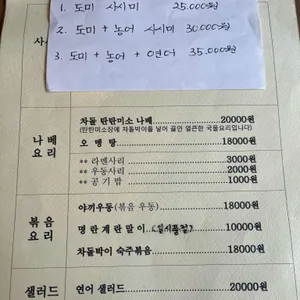 1. 도미 사시미 25.000원
2. 도미 + 농어 사시미 30.000원
3. 도미 + 농어 + 연어 35.000원
사
나베
요리
차돌 탄탄미소 나베 20000원
(탄탄미소장에 차돌박이를 넣어 끓인 얼큰한 국물요리입니다)
오 뎅 탕 18000원
** 라멘사리 3000원
** 우동사리 2000원
** 공 기 밥 1000원
볶음
요리
야끼우동(볶음 우동) 18000원
명 란 계 란 말 이 (일시품절) 10000원
차돌박이 숙주볶음 18000원
샐러드
연어 샐러드 20000원